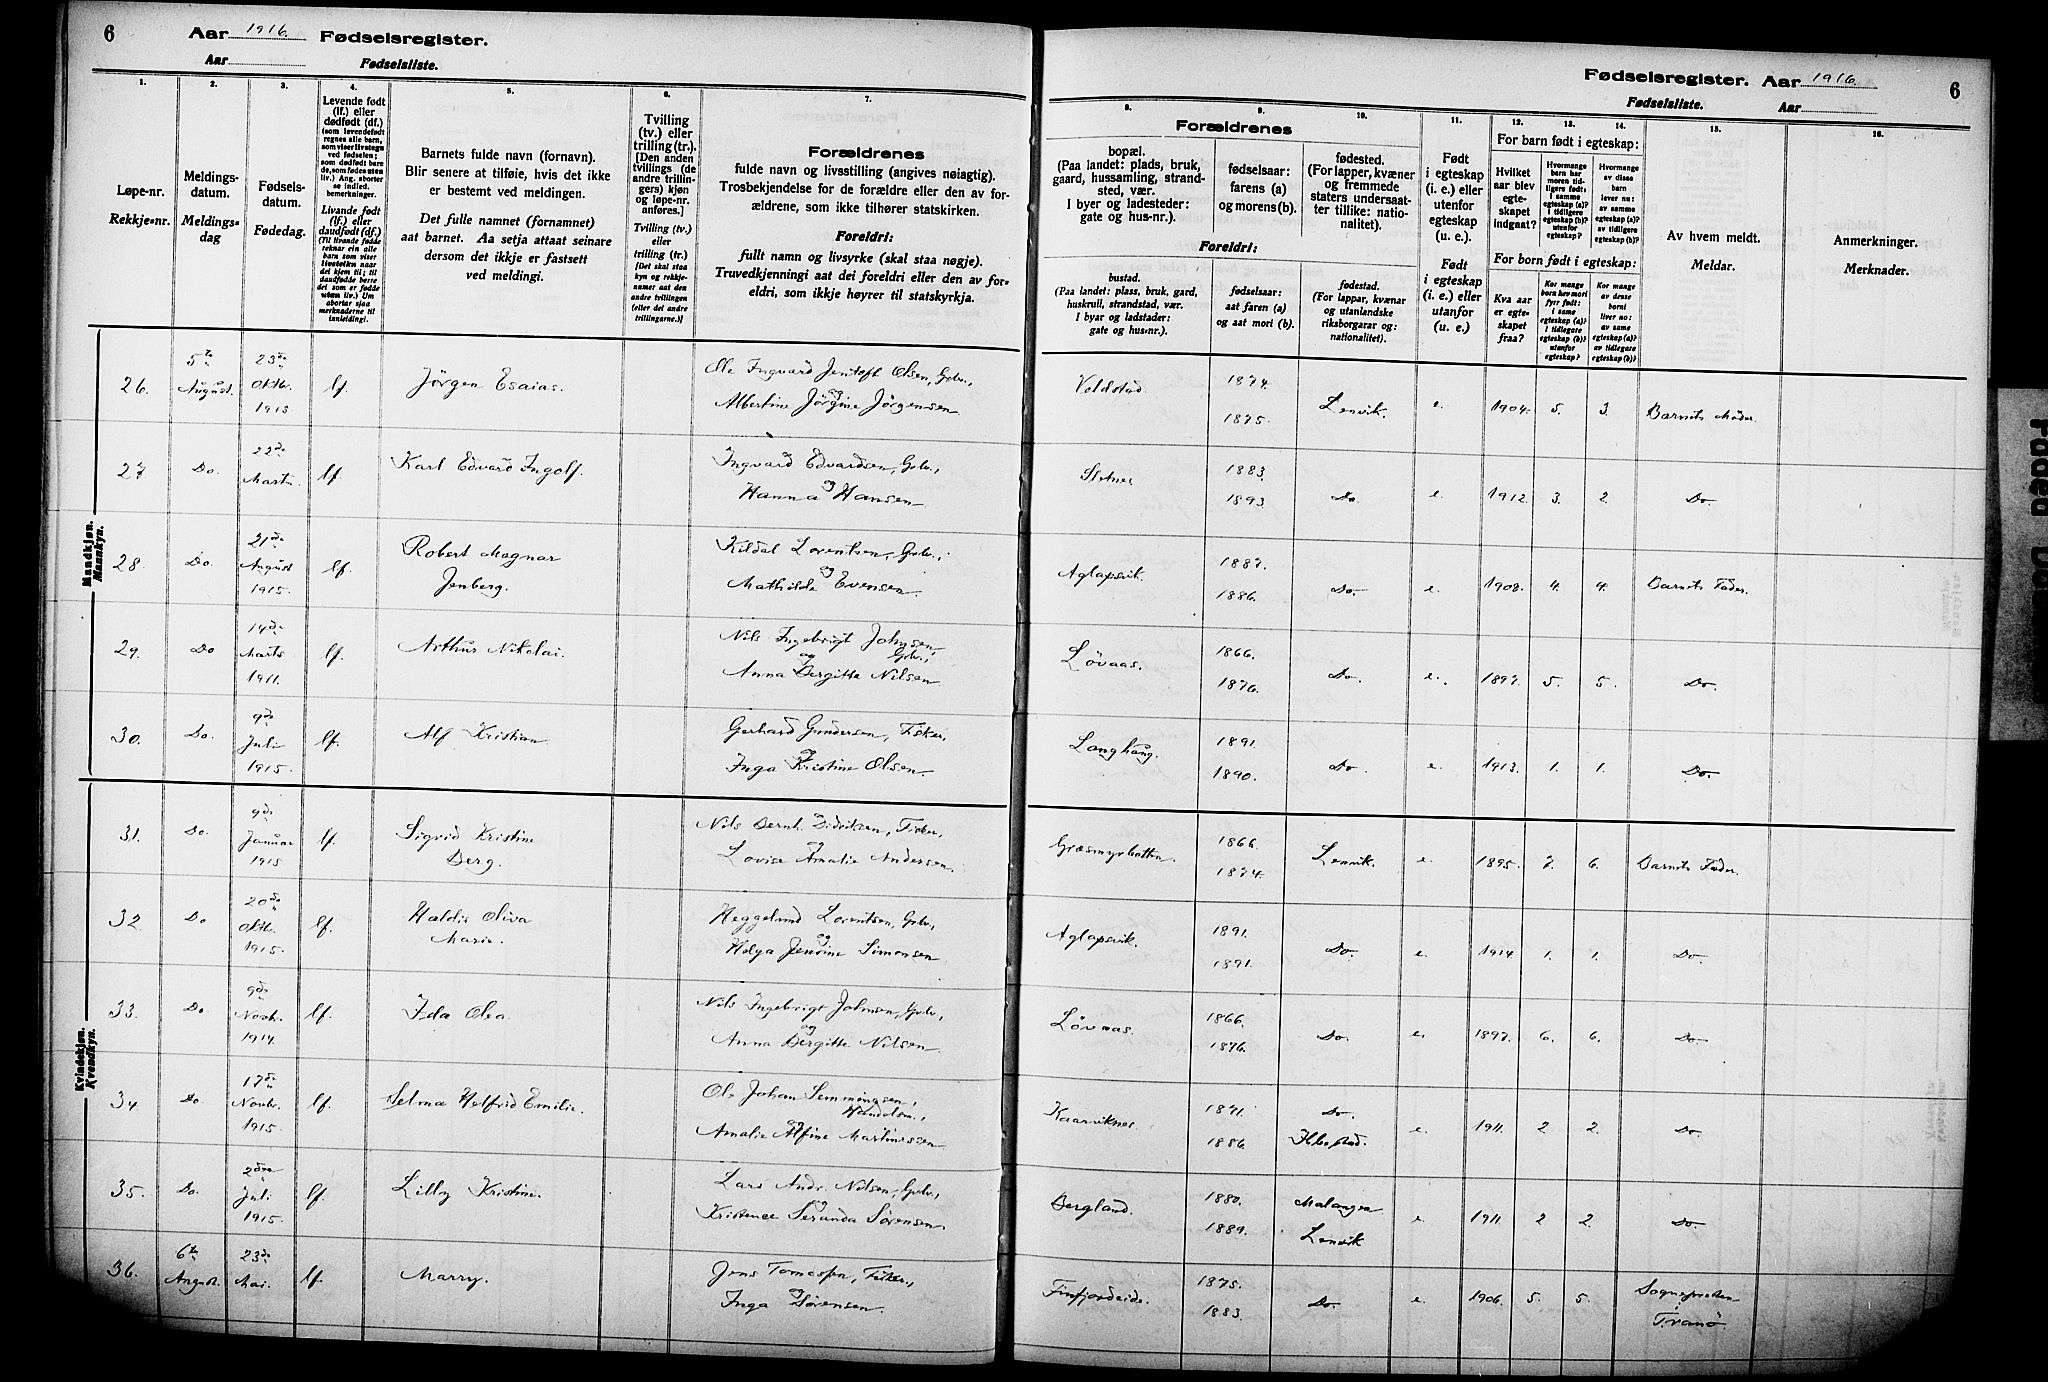 6 Aar 1916. Fødselsregister.
Aar Fødselsliste.
Fødselsregister. Aar 1916. 6
Fødselsliste. Aar
1. 2. 3. 4. 5. 6. 7.
8. 9. 10. 11. 12. 13. 14. 15. 16.
Løpe-nr.
Rekkje-nr.
Meldings-
datum.
Meldings-
dag
Fødsels-
datum.
Fødedag.
Levende født
(lf.) eller
dødfødt (df.)
(som levendefødt
regnes alle barn,
som viser livstegn
ved fødselen;
som dødfødt bare
de, som fødes uten
liv.) Ang. aborter
se indled.
bemerkninger.
Livande født
(lf.) eller
daudfødt (df.)
(Til livande fødde
reknar ein alle
barn som viser
livsteikn naar
dei kjem til; til
daudfødde berre
dei som er fødde
utan liv.) Um
abortar sjaa
merknaderne til
innleiding).
Barnets fulde navn (fornavn).
Blir senere at tilføie, hvis det ikke
er bestemt ved meldingen.
Det fulle namnet (fornamnet)
aat barnet. Aa setja attaat seinare
dersom det ikkje er fastsett
ved meldingi.
Tvilling
(tv.) eller
trilling (tr.).
[Den anden
tvillings (de
andre trillin-
gers) kjøn
og løpe-nr.
anføres.]
Tvilling (tv.)
eller
trilling (tr.)
[Det skal staa
kyn og rekkje-
numer aat den
andre tvillingen
(eller dei andre
trillingarne.)]
Forældrenes
fulde navn og livsstilling (angives nøiagtig).
Trosbekjendelse for de forældre eller den av for-
ældrene, som ikke tilhører statskirken.
Foreldri:
fullt namn og livsyrke (skal staa nøgje).
Truvedkjenningi aat dei foreldri eller den av for-
eldri, som ikkje høyrer til statskyrkja.
Forældrenes
bopæl.
(Paa landet: plads, bruk,
gaard, hussamling, strand-
sted, vær.
I byer og ladesteder:
gate og hus-nr.).
Foreldri:
bustad.
(Paa landet: plass, bruk, gard,
huskrull, strandstad, vær.
I byar og ladstader:
gate og hus-nr.).
fødselsaar:
farens (a)
og morens (b).
fødselsaar:
aat faren (a)
og aat mori (b).
fødested.
(For lapper, kvæner
og fremmede
staters undersaat-
ter tillike: natio-
nalitet).
fødestad.
(For lappar, kvænar
og utanlandske
riksborgarar og:
nationalitet).
Født
i egteskap
(i. e.) eller
utenfor
egteskap
(u. e.).
Født
i egteskap
(i. e.) eller
utanfor
(u. e.).
For barn født i egteskap:
Hvilket
aar blev
egte-
skapet
indgaat?
Hvormange
barn har
moren tid-
ligere født:
i samme
egteskap (a)?
i tidligere
egteskap (b)?
utenfor
egteskap?
Hvormange
av disse
barn
lever nu:
av samme
egteskap (a)?
av tidligere
egteskap (b)?
For born født i egteskap:
Kva aar
er egte-
skapet
fraa?
Kor mange
born hev mori
fyrr født:
i same
egteskap (a)?
i tidlegare
egteskap (b)?
utanfor
egteskap?
Kor mange
av desse
borni
liver no:
av same
egteskap (a)?
av tidlegare
egteskap (b)?
Av hvem meldt.
Meldar.
Anmerkninger.
Merknader.
Mandkjøn.
Mannkyn.
26. 5te August. 23de Oktbr. 1915 lf. Jörgen Esaias. Ole Ingvard Jentoft Olsen, Grbr., og Albertine Jörgine Jörgensen Voldstad. 1874. 1875. Lenvik. e. 1904. 5. 3. Barnets Moder.
27. Do. 22de Marts. lf. Karl Edvard Ingolf. Ingvard Edvardsen, Grbr., og Hanna Hansen Sletnes 1883. 1893. Do e. 1912. 3. 2. Do.
28. Do. 21de August 1915. lf. Robert Magnar Jenberg. Kildal Lorentsen, Grbr., og Mathilde Evensen. Aglapsvik. 1887. 1886. Do. e. 1908. 4. 4. Barnets Fader.
29. Do 14de Marts 1911. lf. Arthur Nikolai. Nils Ingebrigt Johnsen, Grbr., og Anna Bergitte Nilsen Lövaas. 1866. 1876. Do. e. 1897. 5. 5. Do.
30. Do. 9de Juli 1915. lf. Alf Kristian. Gerhard Gundersen, Fisker, og Inga Kristine Olsen Langhaug. 1891. 1890. Do. e. 1913. 1. 1. Do.
Kvindekjøn.
Kvendkyn.
31. Do. 9de Januar 1915 lf. Sigrid Kristine Berg. Nils Bernh. Didriksen, Fisker, og Lovise Amalie Andersen. Græsmyrbotten. 1866. 1874. Lenvik. e. 1895. 7. 6. Barnets Fader.
32. Do 20de Oktbr. 1915. lf. Haldis Oliva Marie. Heggelund Lorentsen, Grbr., og Helga Jensine Simonsen Aglapsvik. 1891. 1891. Do. e. 1914 1. 1. Do.
33. Do. 9de Novbr. 1914. lf. Ida Olea Nils Ingebrigt Johnsen, Grbr., og Anna Bergitte Nilsen. Lövaas. 1866. 1876. Do. e. 1897. 6. 6. Do
34. Do. 17de Novbr. 1915. lf. Selma Helfrid Emilie. Ole Johan Semmingsen, Handelsm., og Amalie Alfine Martinussen Kaarviknes 1871. 1886. Do. Ibestad. e. 1911. 2 2. Do.
35. Do. 2den Juli 1915. lf. Lilly Kristine. Lars Andr. Nilsen, Grbr., og Kristence Seranda Sörensen. Bergland. 1880. 1889. Malangen Lenvik e 1911. 2 2. Do
36. 6te August. 23de Mai. lf. Marry. Jens Tomassen, Fisker, og Inga Sörensen. Finfjordeide. 1875. 1883. Do. e. 1906. 5. 5. Sognepresten i Tranö.